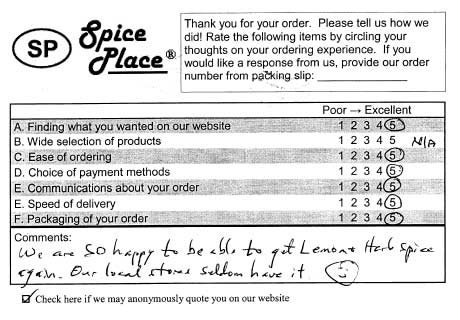 SP
Spice
Place®
Thank you for your order. Please tell us how we
did! Rate the following items by circling your
thoughts on your ordering experience. If you
would like a response from us, provide our order
number from packing slip: ______________
Poor → Excellent
A. Finding what you wanted on our website 1 2 3 4 5
B. Wide selection of products 1 2 3 4 5 N/A
C. Ease of ordering 1 2 3 4 5
D. Choice of payment methods 1 2 3 4 5
E. Communications about your order 1 2 3 4 5
E. Speed of delivery 1 2 3 4 5
F. Packaging of your order 1 2 3 4 5
Comments:
We are so happy to be able to get Lemon & Herb spice
again. Our local stores seldom have it
Check here if we may anonymously quote you on our website